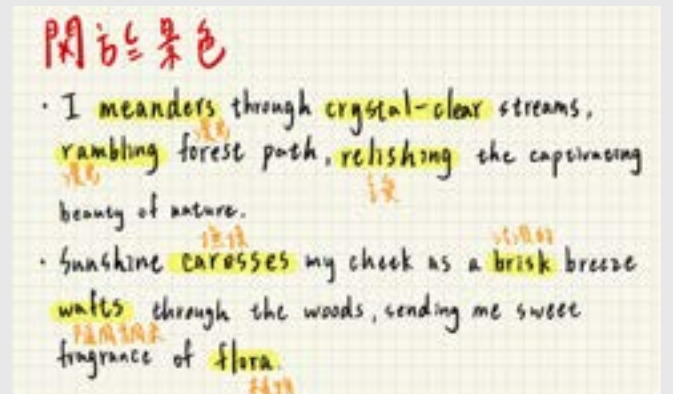 關於景色
· I meanders through crystal-clear streams,
漫步
rambling forest path, relishing the captivating
漫步 享受
beauty of nature.
· Sunshine caresses my cheek as a brisk breeze
wafts through the woods, sending me sweet
fragrance of flora.